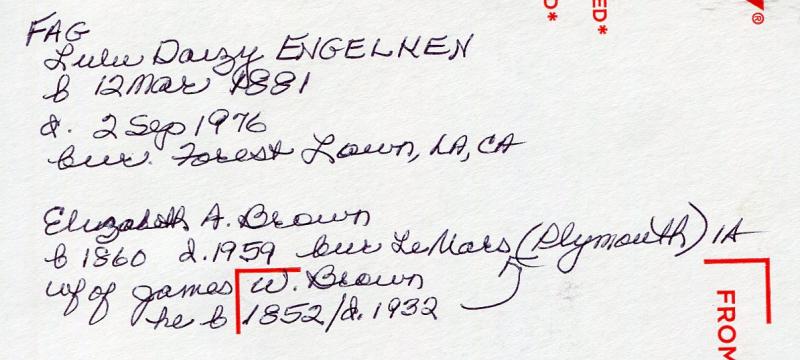 FAG
Lulu Daizy ENGELKEN
b 12 Mar 1881
d. 2 Sep 1976
bur. Forest Lawn, LA, CA
Elizabeth A. Brown
b 1860 d. 1959 bur LeMars (Plymouth) IA
wf of James W. Brown
he b 1852/d. 1932
ED*
D*
®
FROM